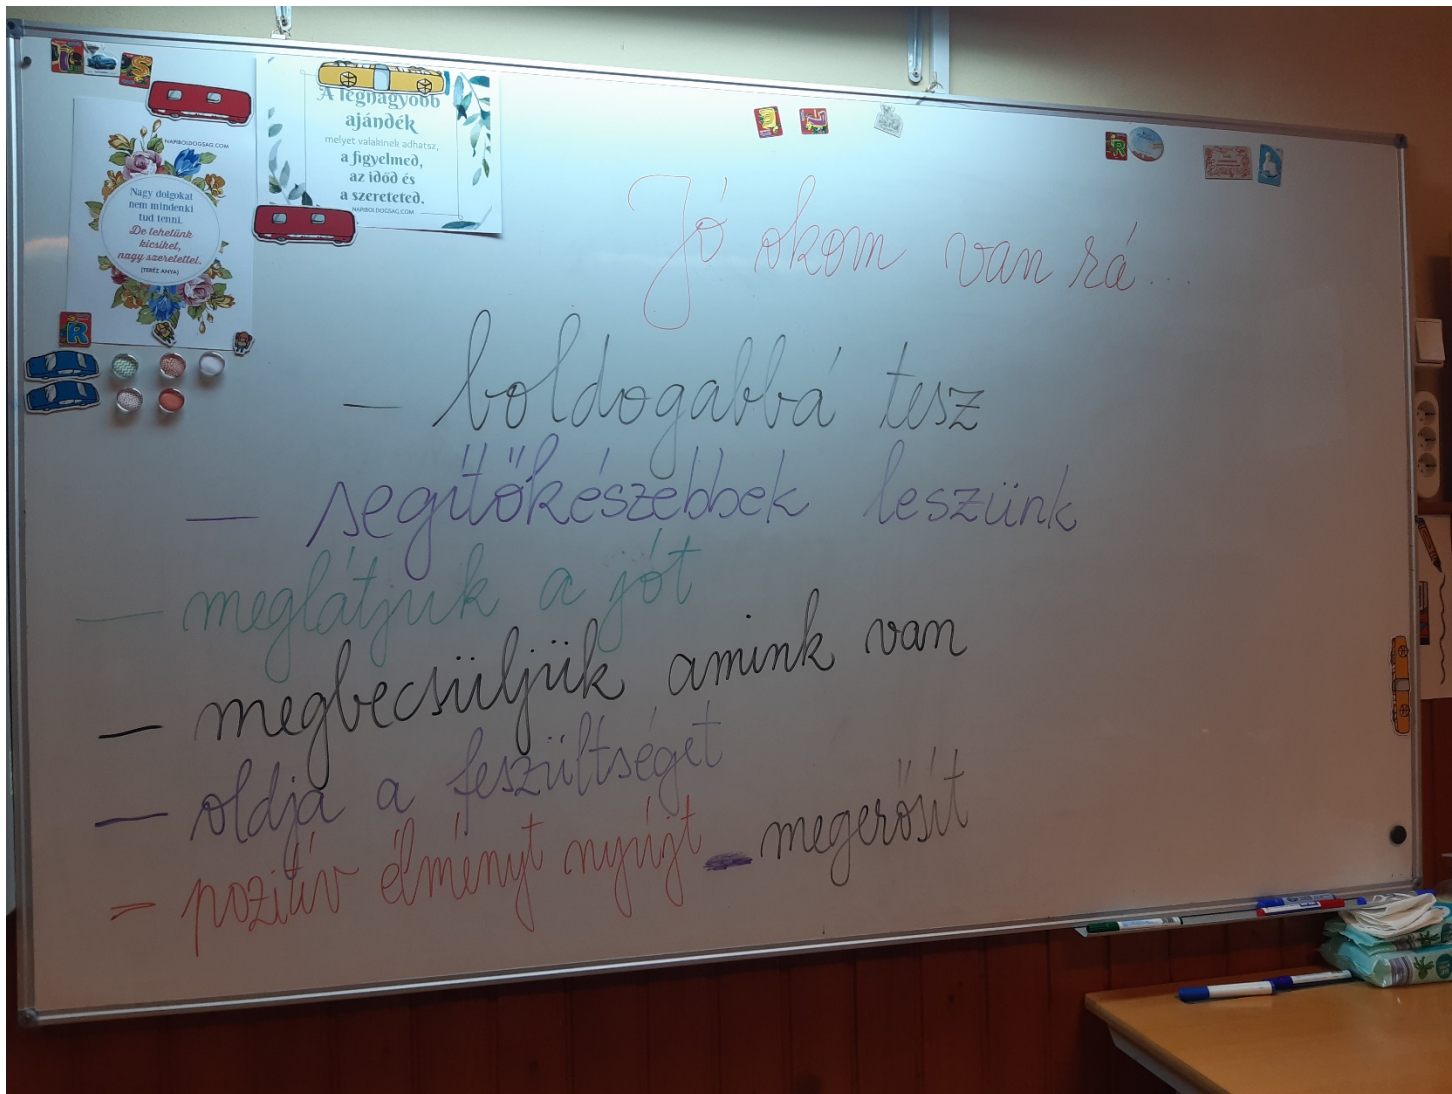 NAPIBOLDOGSAG.COM
Nagy dolgokat
nem mindenki
tud tenni.
De tehetünk
kicsiket,
nagy szeretettel.
(TERÉZ ANYA)
A legnagyobb
ajándék
melyet valakinek adhatsz,
a figyelmed,
az időd és
a szereteted.
NAPIBOLDOGSAG.COM
Jó okom van rá...
- boldogabbá tesz
- segítőkészebbek leszünk
- meglátjuk a jót
- megbecsüljük amink van
- oldja a feszültséget
- pozitív élményt nyújt - megerősít
R
R